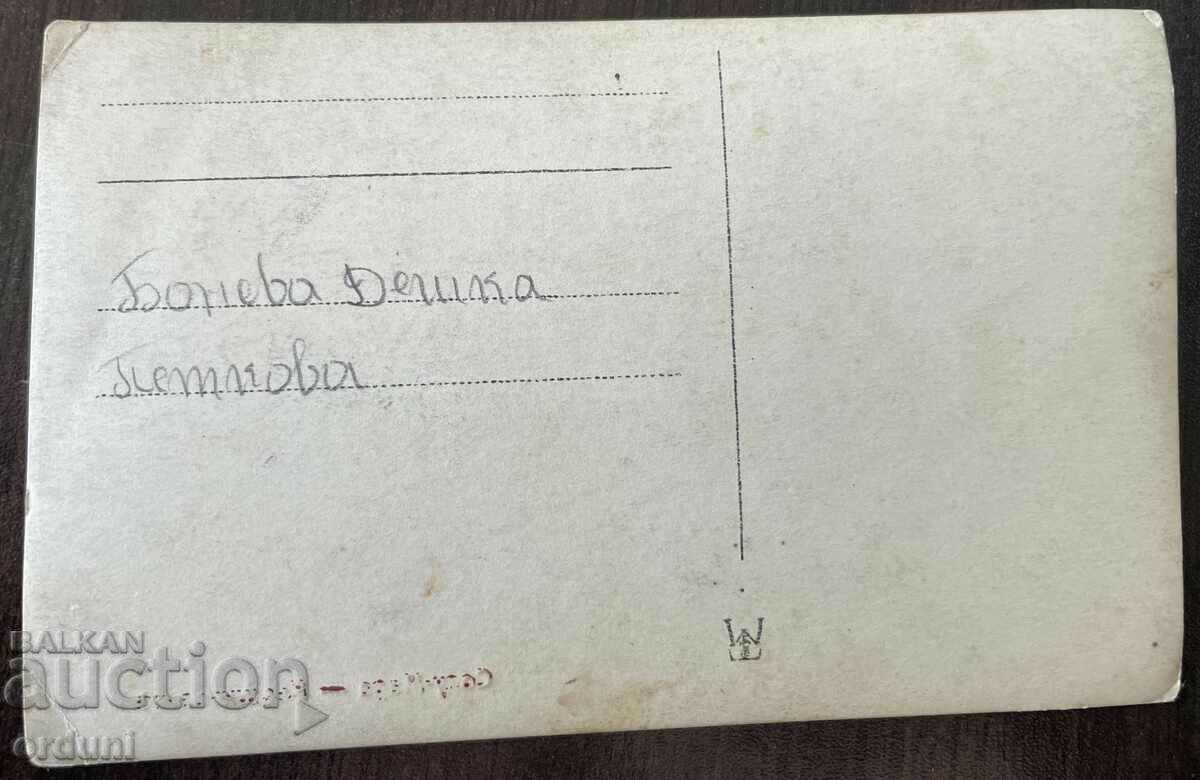 Бонева Дешка
Петкова
BALKAN
auction
orduni